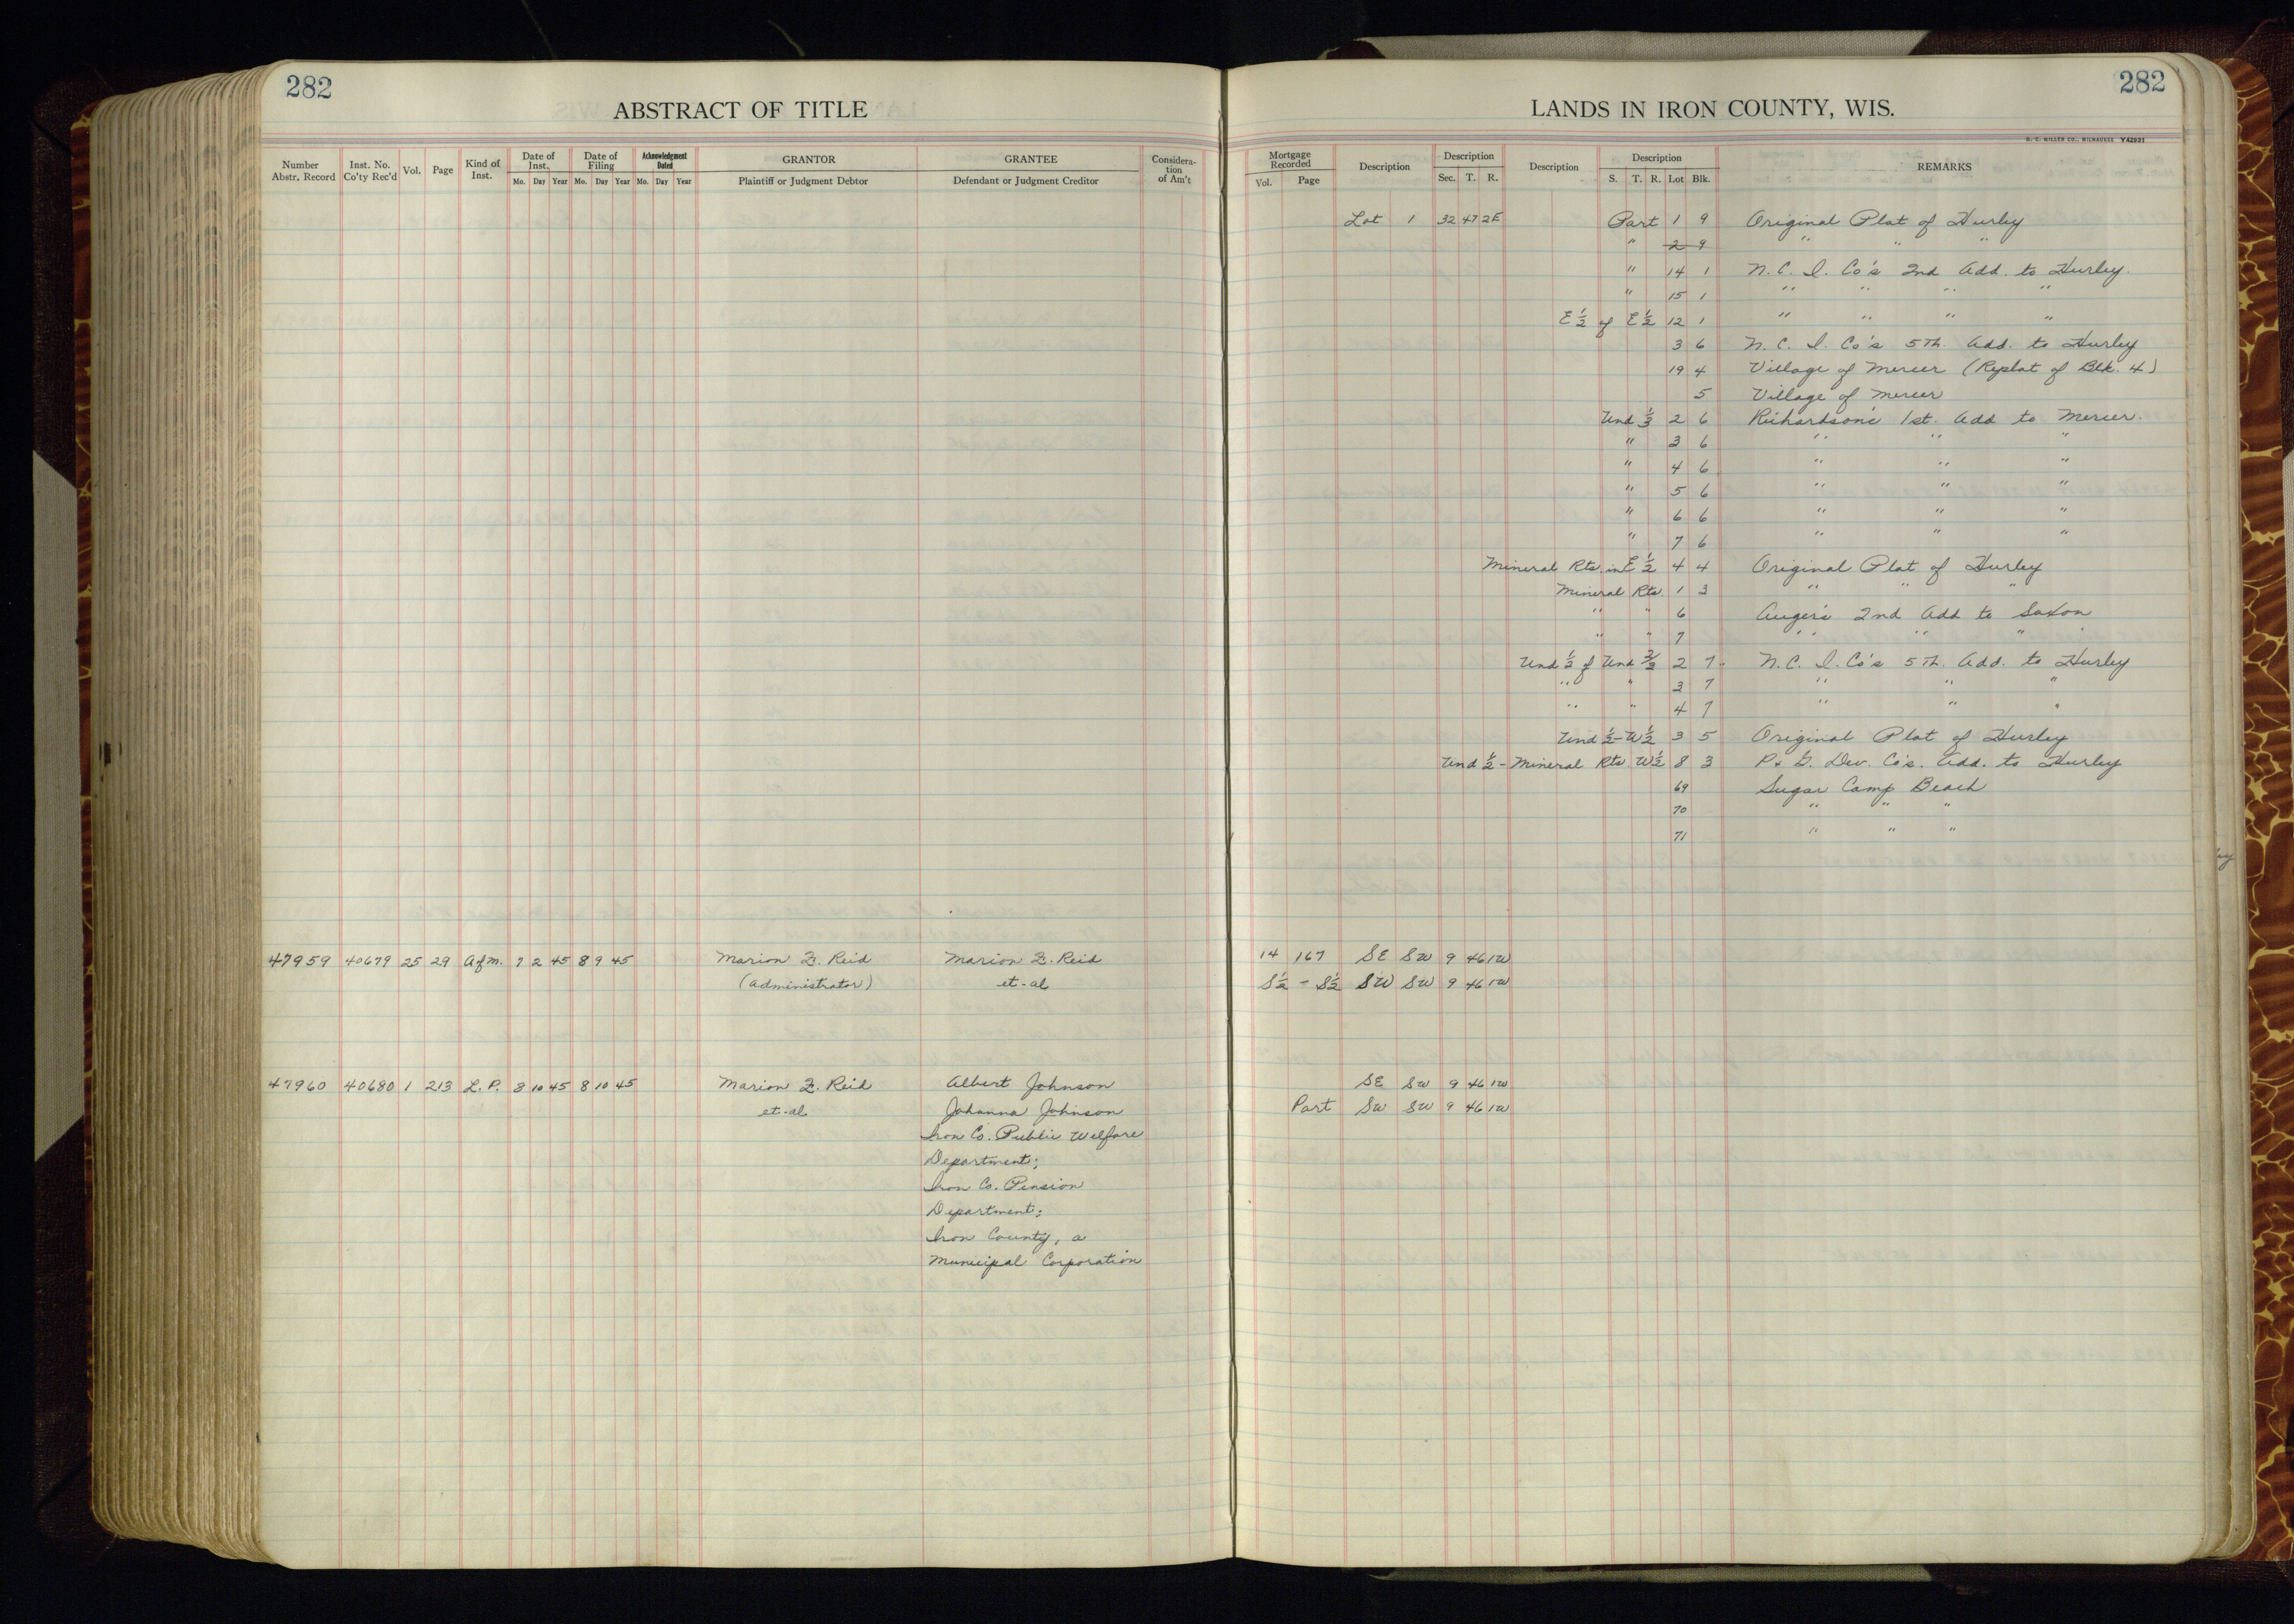 282
ABSTRACT OF TITLE
Number Abstr. Record Inst. No. Co'ty Rec'd Vol. Page Kind of Inst. Date of Inst. Mo. Day Year Date of Filing Mo. Day Year Acknowledgment Dated Mo. Day Year GRANTOR Plaintiff or Judgment Debtor GRANTEE Defendant or Judgment Creditor Considera-tion of Am't
47959 40679 25 29 Afm. 7 2 45 8 9 45 Marion F. Reid Marion F. Reid
(Administrator) et-al
47960 40680 1 213 L. P. 8 10 45 8 10 45 Marion F. Reid Albert Johnson
et-al Johanna Johnson
Iron Co. Public Welfare
Department;
Iron Co. Pension
Department;
Iron County, a
Municipal Corporation
282
LANDS IN IRON COUNTY, WIS.
H. C. MILLER CO., MILWAUKEE Y42931
Mortgage Recorded Vol. Page Description Description Sec. T. R. Description Description S. T. R. Lot Blk. REMARKS
Lot 1 32 47 2E Part 1 9 Original Plat of Hurley
" 2 9 " " "
" 14 1 N. C. I. Co's 2nd Add. to Hurley.
" 15 1 " " " "
E 1/2 of E 1/2 12 1 " " " "
3 6 N. C. I. Co's 5th. Add. to Hurley
19 4 Village of Mercer (Replat of Blk. 4)
5 Village of Mercer
Und 1/3 2 6 Richardson's 1st. Add to Mercer.
" 3 6 " " "
" 4 6 " " "
" 5 6 " " "
" 6 6 " " "
" 7 6 " " "
Mineral Rts. in E 1/2 4 4 Original Plat of Hurley
Mineral Rts. 1 3 " " "
" " 6 Auger's 2nd Add to Saxon
" " 7 " " " "
Und 1/2 of Und 2/3 2 7 N. C. I. Co's 5th. Add. to Hurley
" " 3 7 " " "
" " 4 7 " " "
Und 1/2 - W 1/2 3 5 Original Plat of Hurley
Und 1/2 - Mineral Rts W 1/2 8 3 P. & G. Dev. Co's. Add. to Hurley
69 Sugar Camp Beach
70 " " "
71 " " "
14 167 SE SW 9 46 1W
S 1/2 - S 1/2 SW SW 9 46 1W
SE SW 9 46 1W
Part SW SW 9 46 1W